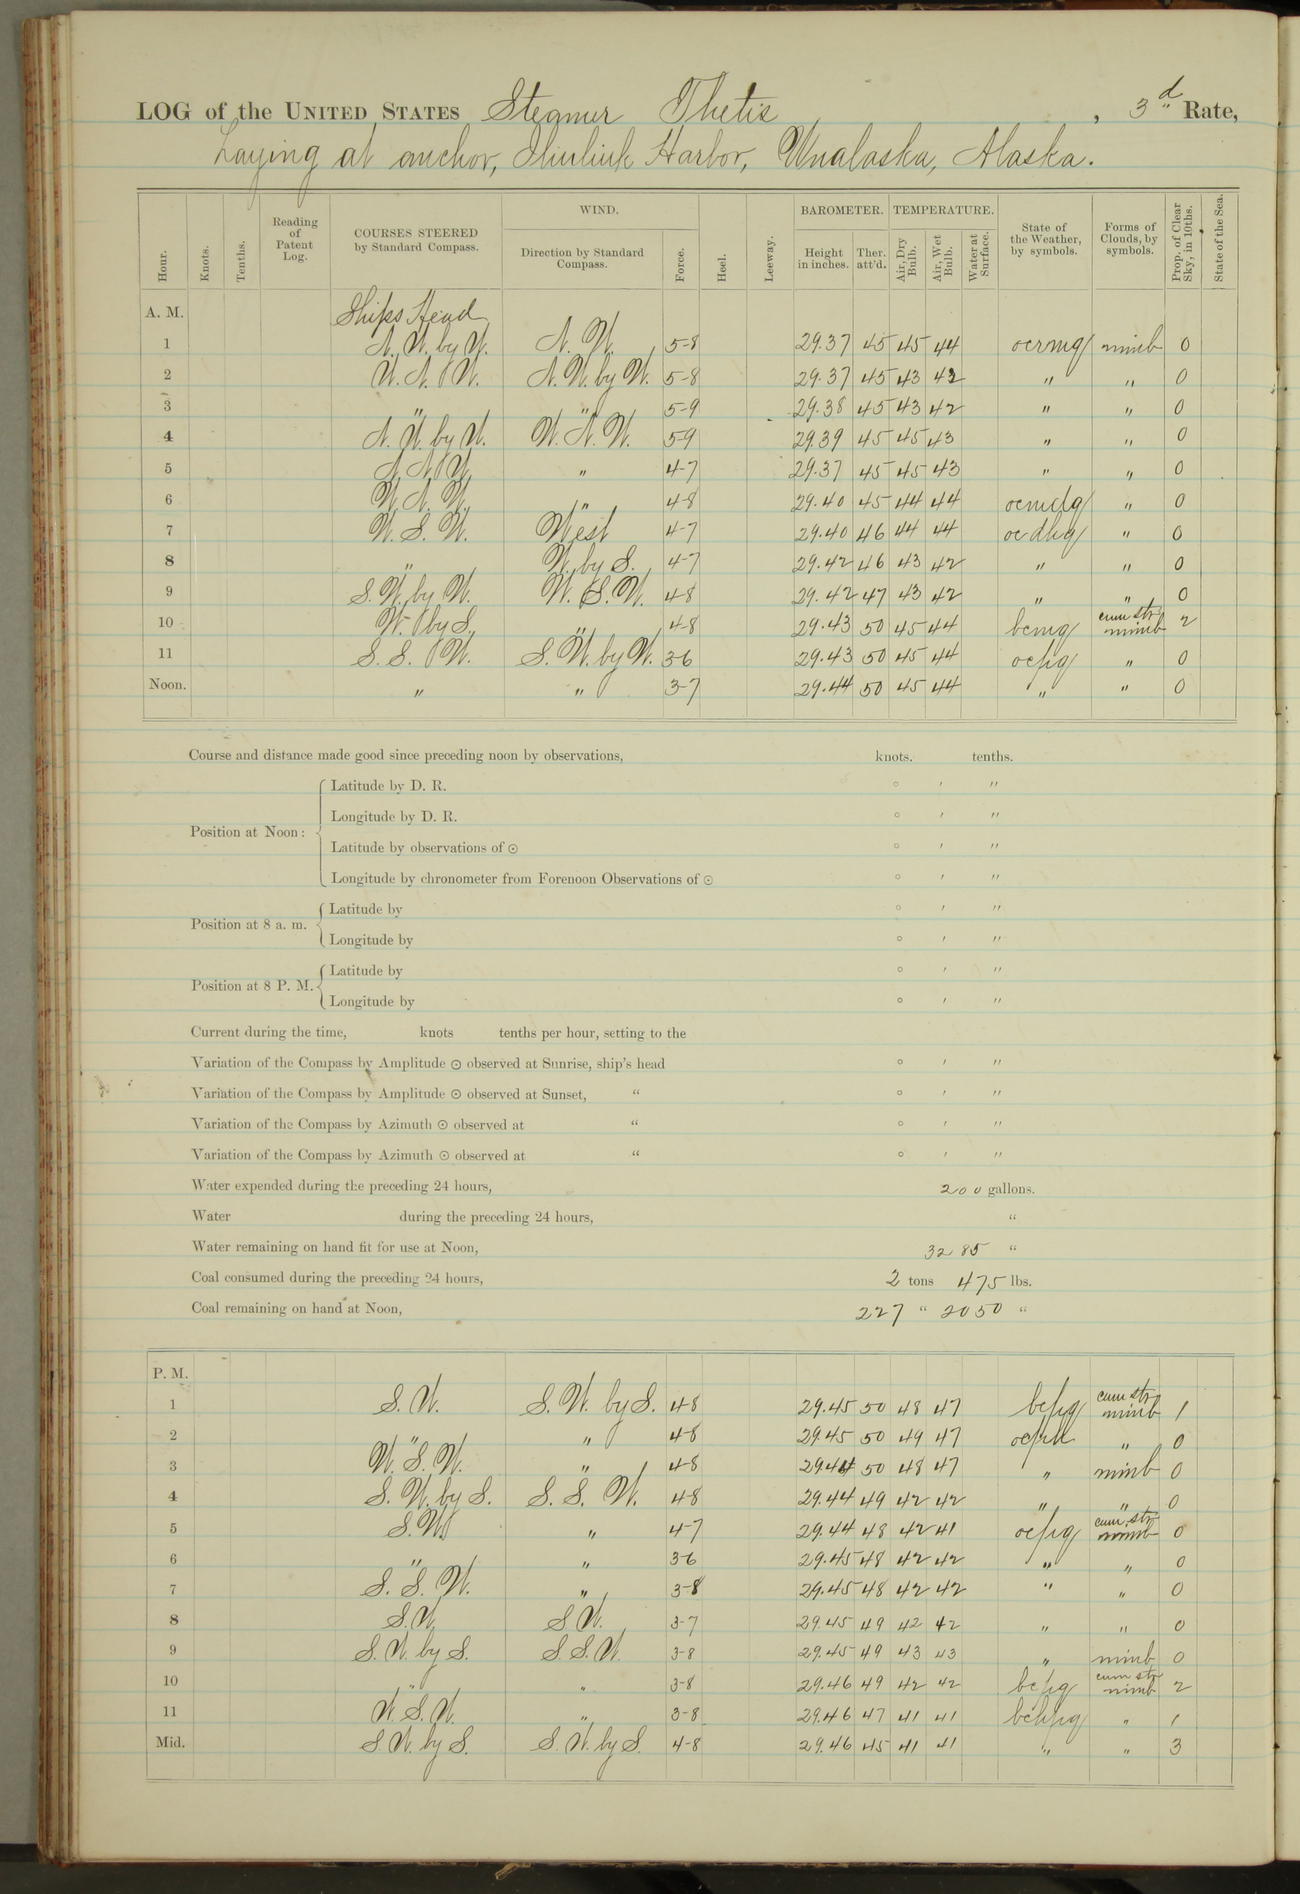 LOG of the UNITED STATES Steamer Thetis, 3d Rate,
Laying at anchor, Iliuliuk Harbor, Unalaska, Alaska.
Hour. Knots. Tenths. Reading of Patent Log. COURSES STEERED by Standard Compass. WIND. Direction by Standard Compass. Force. Heel. Leeway. BAROMETER. Height in inches. Ther. att'd. TEMPERATURE. Air, Dry Bulb. Air, Wet Bulb. Water at Surface. State of the Weather, by symbols. Forms of Clouds, by symbols. Prop. of Clear Sky, in 10ths. State of the Sea.
A. M. Ships Head
1 N. W. by W. N. W. 5-8 29.37 45 45 44 ocrmg nimb 0
2 W. N. W. N. W. by W. 5-8 29.37 45 43 42 " " 0
3 " " 5-9 29.38 45 43 42 " " 0
4 N. W. by W. W. N. W. 5-9 29.39 45 45 43 " " 0
5 N. N. W. " 4-7 29.37 45 45 43 " " 0
6 W. N. W. " 4-8 29.40 45 44 44 ocmdg " 0
7 W. S. W. West 4-7 29.40 46 44 44 ocdhg " 0
8 " W. by S. 4-7 29.42 46 43 42 " " 0
9 S. W. by W. W. S. W. 4-8 29.42 47 43 42 " " 0
10 W. by S. " 4-8 29.43 50 45 44 bcmg cum str nimb 2
11 S. S. W. S. W. by W. 3-6 29.43 50 45 44 ocpg " 0
Noon. " " 3-7 29.44 50 45 44 " " 0
Course and distance made good since preceding noon by observations, knots. tenths.
Position at Noon: Latitude by D. R. ° ′ ″
Longitude by D. R. ° ′ ″
Latitude by observations of ☉ ° ′ ″
Longitude by chronometer from Forenoon Observations of ☉ ° ′ ″
Position at 8 a. m. Latitude by ° ′ ″
Longitude by ° ′ ″
Position at 8 P. M. Latitude by ° ′ ″
Longitude by ° ′ ″
Current during the time, knots tenths per hour, setting to the
Variation of the Compass by Amplitude ☉ observed at Sunrise, ship's head ° ′ ″
Variation of the Compass by Amplitude ☉ observed at Sunset, " ° ′ ″
Variation of the Compass by Azimuth ☉ observed at " ° ′ ″
Variation of the Compass by Azimuth ☉ observed at " ° ′ ″
Water expended during the preceding 24 hours, 200 gallons.
Water during the preceding 24 hours, "
Water remaining on hand fit for use at Noon, 3285 "
Coal consumed during the preceding 24 hours, 2 tons 475 lbs.
Coal remaining on hand at Noon, 227 " 2050 "
P. M.
1 S. W. S. W. by S. 4-8 29.45 50 48 47 bcpg cum str nimb 1
2 " " 4-8 29.45 50 49 47 " 0
3 W. S. W. " 4-8 29.44 50 48 47 " nimb 0
4 S. W. by S. S. S. W. 4-8 29.44 49 42 42 " " 0
5 S. W. " 4-7 29.44 48 42 41 ocpg cum. str nimb 0
6 " " 3-6 29.45 48 42 42 " " 0
7 S. S. W. " 3-8 29.45 48 42 42 " " 0
8 S. W. S W. 3-7 29.45 49 42 42 " " 0
9 S. W. by S. S. S. W. 3-8 29.45 49 43 43 " nimb 0
10 " " 3-8 29.46 49 42 42 bcpg cum str nimb 2
11 W. S. W. " 3-8 29.46 47 41 41 " 1
Mid. S. W. by S. S. W. by S. 4-8 29.46 45 41 41 " " 3